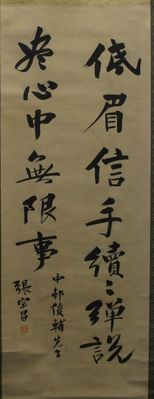 低眉信手續々弾說
盡心中無限事
中邨俊輔先生
張宗昌